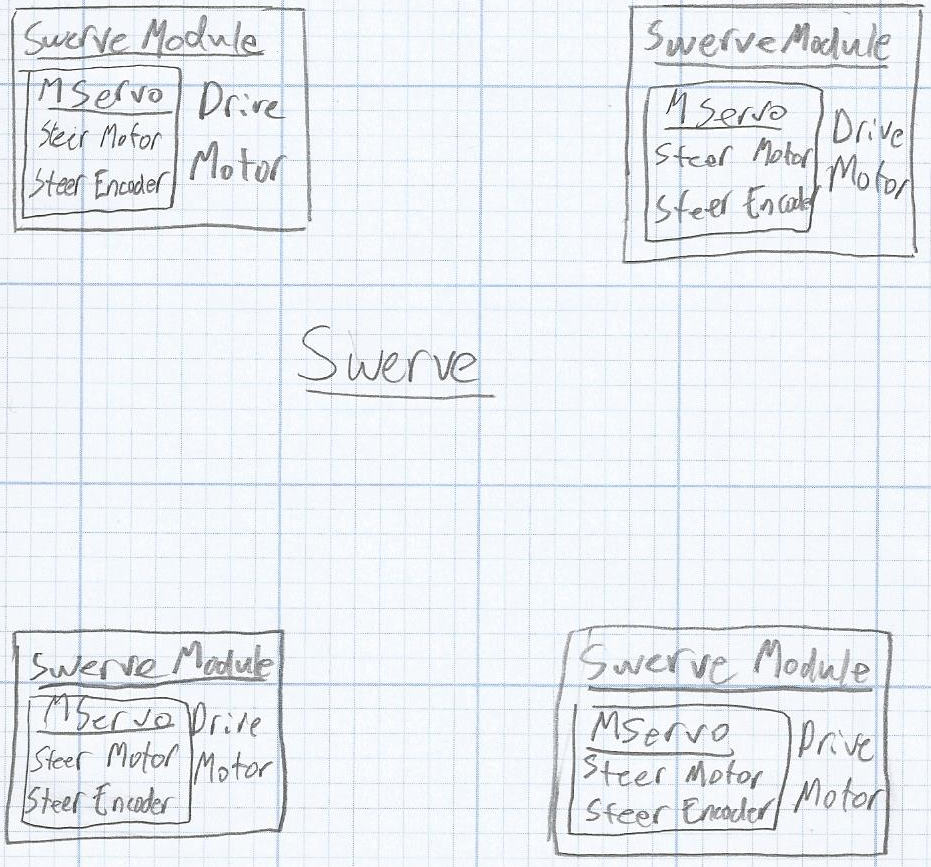 Swerve Module
MServo
Steir Motor
Steer Encoder
Drive
Motor
Swerve Module
MServo
Steer Motor
Steer Encoder
Drive
Motor
Swerve
Swerve Module
MServo
Steer Motor
Steer Encoder
Drive
Motor
Swerve Module
MServo
Steer Motor
Steer Encoder
Drive
Motor